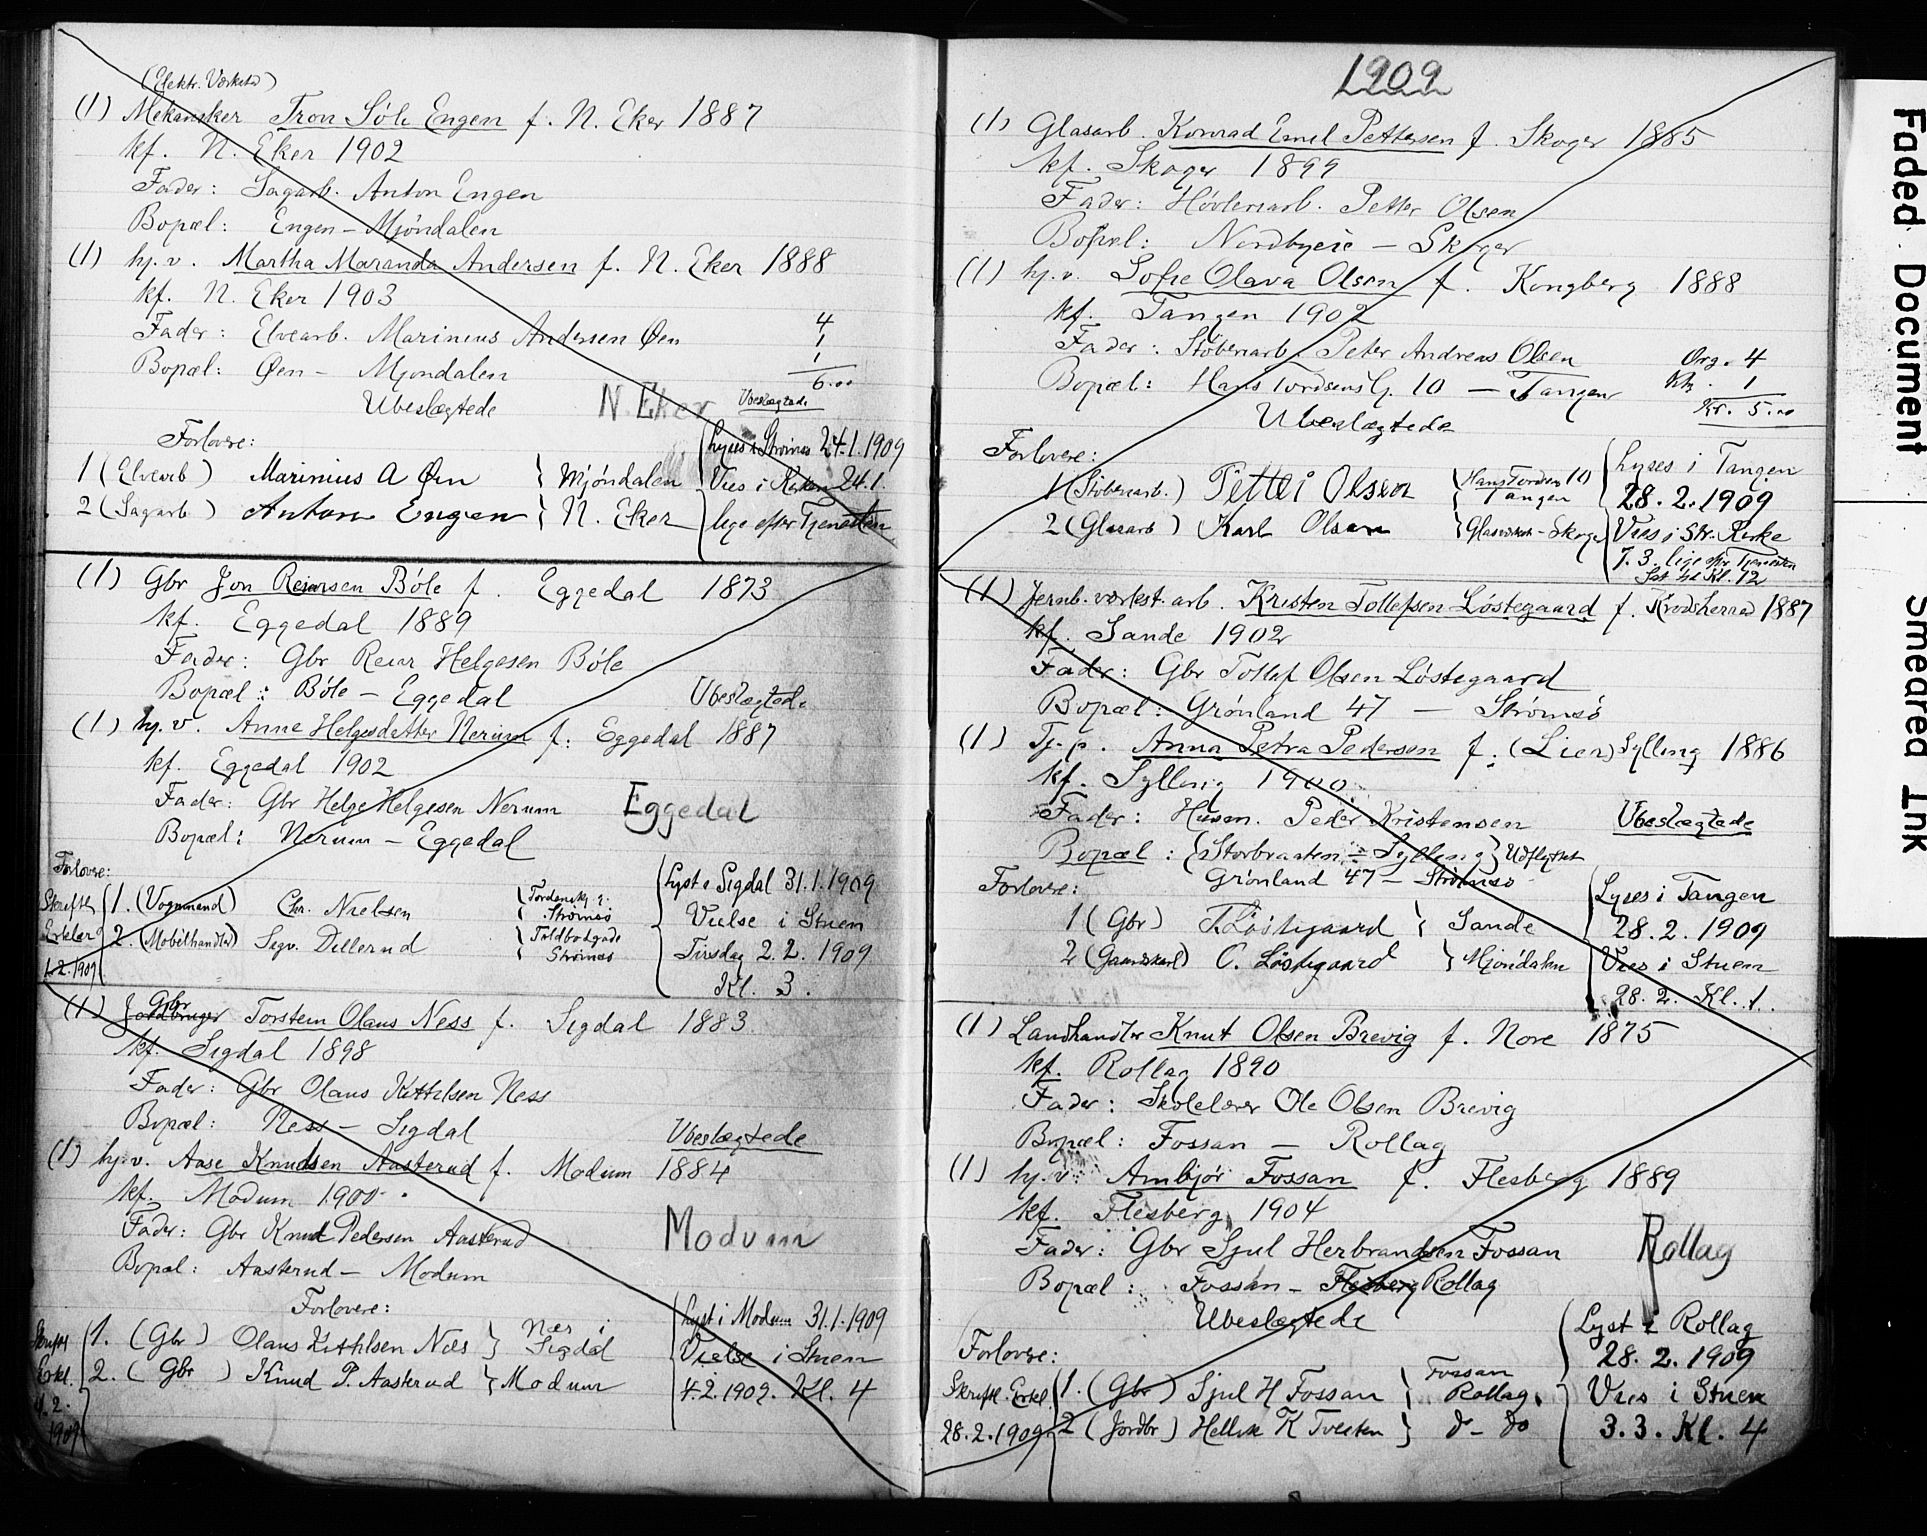 (Elektr. Værksted)
(1) Mekaniker Tron Söli Engen f. N. Eker 1887
kf. N. Eker 1902
Fader: Sagarb. Anton Engen
Bopæl: Engen – Mjöndalen
(1) hj. v. Martha Maranda Andersen f. N. Eker 1888
kf. N. Eker 1903
Fader: Elvearb. Marinius Andersen Øen
Bopæl: Øen – Mjöndalen
4
1
1
6.00
Ubeslægtede
N. Eker
Ubeslægtede
Forlovere:
1 (Elvearb) Marinius A Øen } Mjöndalen
2 (Sagarb) Anton Engen } N. Eker
Lyses i Strömsö 24.1.1909
Vies i Kirken 24.1.
lige efter Tjenesten
(1) Gbr Jon Reiersen Böle f. Eggedal 1873
kf. Eggedal 1889
Fader: Gbr Reier Helgesen Böle
Bopæl: Böle – Eggedal
Ubeslægtede
(1) hj. v. Anne Helgesdatter Nerum f. Eggedal 1887
kf. Eggedal 1902
Fader: Gbr Helge Helgesen Nerum
Bopæl: Nerum – Eggedal
Eggedal
Forlovere:
Skriftl. Erklær. 1.2.1909
1. (Vognmand) Chr. Nielsen } Strömsö
2. (Möbelhandler) Sigv. Dillerud } Toldbodgade Strömsö
Lyst i Sigdal 31.1.1909
Vielse i Stuen
Tirsdag 2.2.1909
Kl. 3.
(1) Gbr Jordbruger Torstein Olaus Ness f. Sigdal 1883
kf. Sigdal 1898
Fader: Gbr Olaus Kittilsen Ness
Bopæl: Ness – Sigdal
Ubeslægtede
(1) hj. v. Aase Knudsen Aasterud f. Modum 1884
kf. Modum 1900
Fader: Gbr Knut Pedersen Aasterud
Bopæl: Aasterud – Modum
Modum
Forlovere:
Skriftl. Erkl. 4.2.1909
1. (Gbr) Olaus Kittilsen Næs } Næs i Sigdal
2. (Gbr) Knud P. Aasterud } Modum
Lyst i Modum 31.1.1909
Vielse i Stuen
4.2.1909. Kl. 4
1909
(1) Glasarb. Konrad Emil Pettersen f. Skoger 1885
kf. Skoger 1899
Fader: Hövleriarb. Petter Olsen
Bopæl: Nordbyeie – Skoger
(1) hj. v. Sofie Olava Olsen f. Kongberg 1888
kf. Tangen 1902
Fader: Stöberiarb. Peter Andreas Olsen
Bopæl: Hans Tordsensg. 10 – Tangen
Org. 4
Kk. 1
Kr. 5.00
Ubeslægtede
Forlovere:
1 (Stöberiarb.) Petter Olsen } Hans Tordsens 10 Tangen
2 (Glasarb) Karl Olsen } Glasværket – Skoger
Lyses i Tangen
28.2.1909
Vies i Str. Kirke
7.3. lige eftr Tjenesten
Kl. 12
(1) Jernb. værkst. arb. Kristen Tollefsen Löstegaard f. Krödsherad 1887
kf. Sande 1902
Fader: Gbr Tollef Olsen Löstegaard
Bopæl: Grönland 47 – Strömsö
(1) Tj. p. Anna Petra Pedersen f. (Lier) Sylling 1886
kf. Sylling 1900.
Fader: Husm. Peder Kristensen
Ubeslægtede
Bopæl: {Storbraaten – Sylling} Udflyttet
Grönland 47 – Strömsö
Forlovere:
1 (Gbr) T. Löstegaard } Sande
2 (Gaardskarl) O. Löstegaard } Mjöndalen
Lyses i Tangen
28.2.1909
Vies i Stuen
28.2. Kl. 1.
(1) Landhandler Knut Olsen Brevig f. Nore 1875
kf. Rollag 1890
Fader: Skolelærer Ole Olsen Brevig
Bopæl: Fossan – Rollag
(1) hj. v. Ambjör Fossan f. Flesberg 1889
kf. Flesberg 1904
Fader: Gbr Sjul Herbrandsen Fossan
Bopæl: Fossan – Flesberg Rollag
Rollag
Ubeslægtede
Forlovere:
Skriftl. Erkl. 28.2.1909
1. (Gbr) Sjul H Fossan } Fossan Rollag
2 (Jordbr) Hellik K Tveiten } do – do
Lyst i Rollag
28.2.1909
Vies i Stuen
3.3. Kl. 4
Faded Document
Smeared Ink